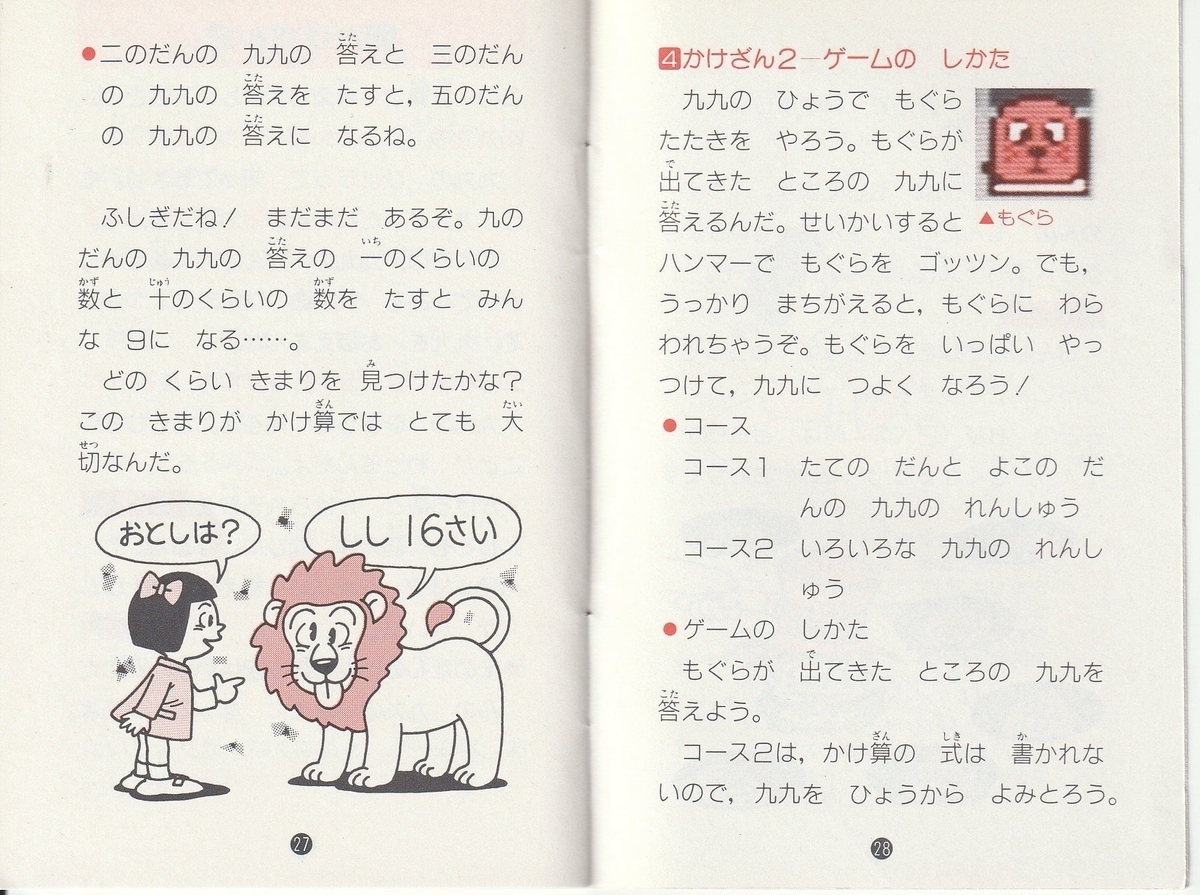 ●二のだんの 九九の 答えと 三のだん
の 九九の 答えを たすと，五のだん
の 九九の 答えに なるね。
ふしぎだね！ まだまだ あるぞ。九の
だんの 九九の 答えの 一のくらいの
数と 十のくらいの 数を たすと みん
な 9に なる……。
どの くらい きまりを 見つけたかな？
この きまりが かけ算では とても 大
切なんだ。
おとしは？
しし 16さい
27
4かけざん2―ゲームの しかた
九九の ひょうで もぐら
たたきを やろう。もぐらが
出てきた ところの 九九に
答えるんだ。せいかいすると
▲もぐら
ハンマーで もぐらを ゴッツン。でも，
うっかり まちがえると，もぐらに わら
われちゃうぞ。もぐらを いっぱい やっ
つけて，九九に つよく なろう！
●コース
コース1 たての だんと よこの だ
んの 九九の れんしゅう
コース2 いろいろな 九九の れんし
ゅう
●ゲームの しかた
もぐらが 出てきた ところの 九九を
答えよう。
コース2は，かけ算の 式は 書かれな
いので，九九を ひょうから よみとろう。
28